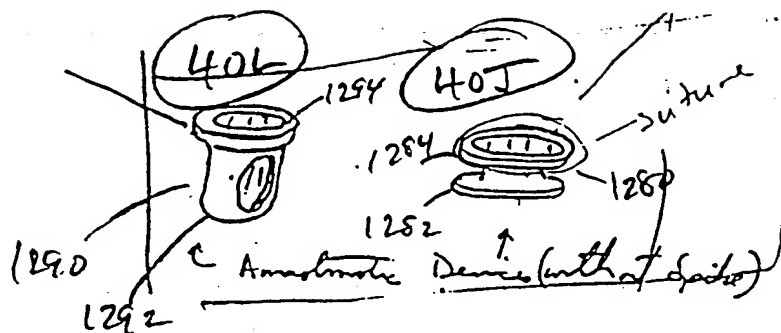 40L
40J
1294
suture
1284
1280
1282
1290
1292
Anastomotic Device (without spikes)